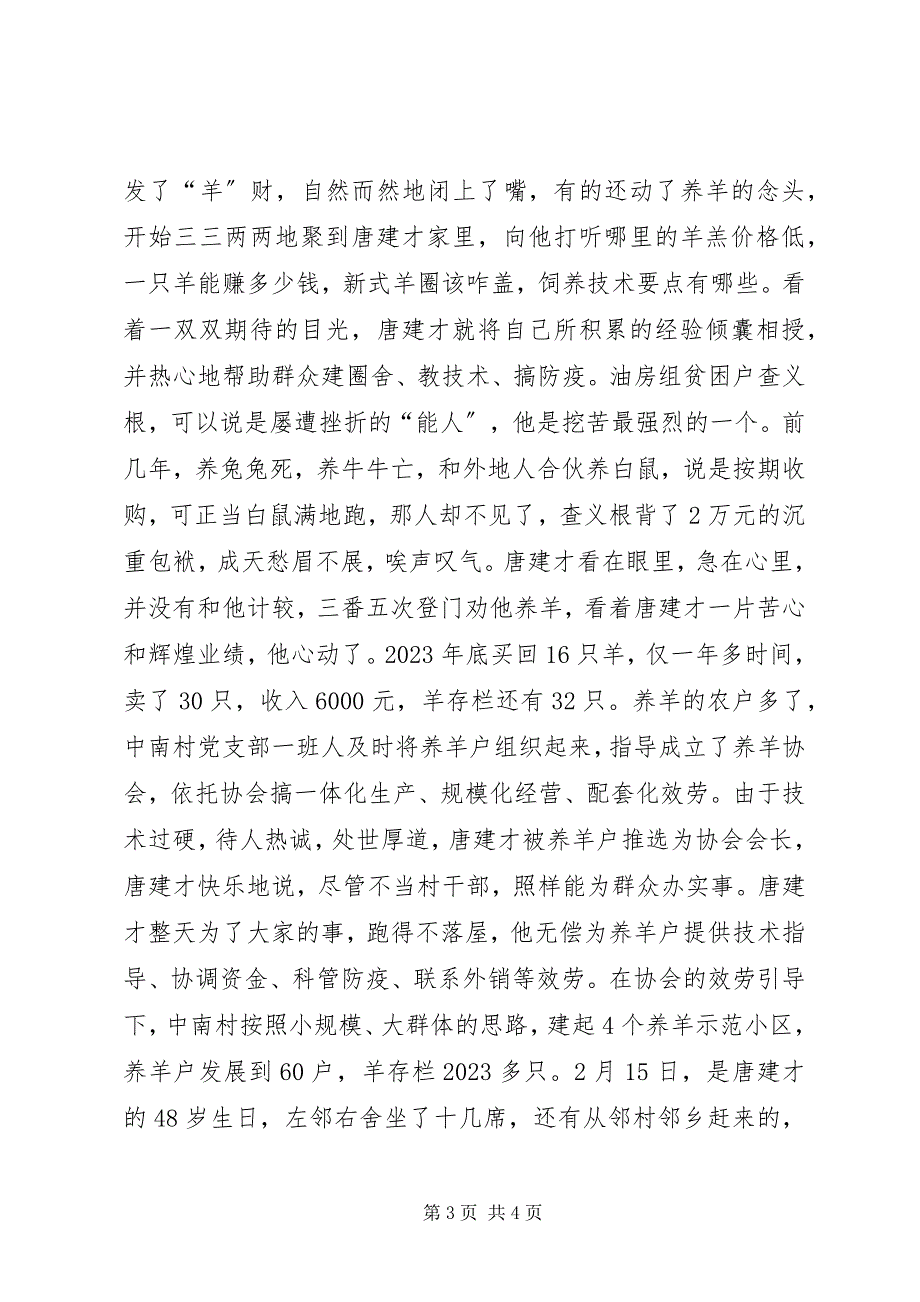 发了“羊〞财，自然而然地闭上了嘴，有的还动了养羊的念头，
开始三三两两地聚到唐建才家里，向他打听哪里的羊羔价格低，
一只羊能赚多少钱，新式羊圈该咋盖，饲养技术要点有哪些。看
着一双双期待的目光，唐建才就将自己所积累的经验倾囊相授，
并热心地帮助群众建圈舍、教技术、搞防疫。油房组贫困户查义
根，可以说是屡遭挫折的“能人〞，他是挖苦最强烈的一个。前
几年，养兔兔死，养牛牛亡，和外地人合伙养白鼠，说是按期收
购，可正当白鼠满地跑，那人却不见了，查义根背了 2 万元的沉
重包袱，成天愁眉不展，唉声叹气。唐建才看在眼里，急在心里，
并没有和他计较，三番五次登门劝他养羊，看着唐建才一片苦心
和辉煌业绩，他心动了。2023 年底买回 16 只羊，仅一年多时间，
卖了 30 只，收入 6000 元，羊存栏还有 32 只。养羊的农户多了，
中南村党支部一班人及时将养羊户组织起来，指导成立了养羊协
会，依托协会搞一体化生产、规模化经营、配套化效劳。由于技
术过硬，待人热诚，处世厚道，唐建才被养羊户推选为协会会长，
唐建才快乐地说，尽管不当村干部，照样能为群众办实事。唐建
才整天为了大家的事，跑得不落屋，他无偿为养羊户提供技术指
导、协调资金、科管防疫、联系外销等效劳。在协会的效劳引导
下，中南村按照小规模、大群体的思路，建起 4 个养羊示范小区，
养羊户发展到 60 户，羊存栏 2023 多只。2 月 15 日，是唐建才
的 48 岁生日，左邻右舍坐了十几席，还有从邻村邻乡赶来的，
第 3 页 共 4 页